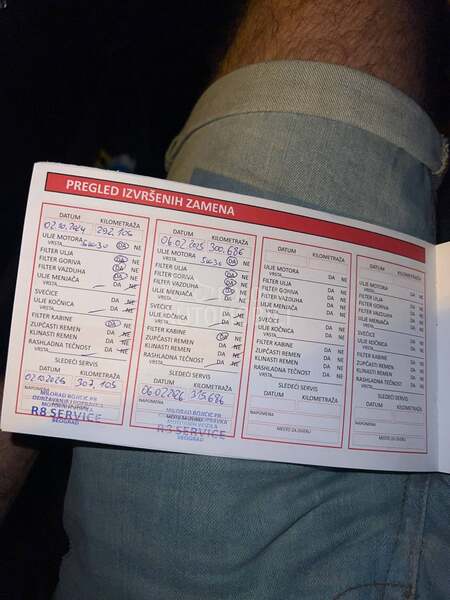 PREGLED IZVRŠENIH ZAMENA
DATUM KILOMETRAŽA
02.10.2024 292,105
ULJE MOTORA DA NE
VRSTA 5W-30
FILTER ULJA DA NE
FILTER GORIVA DA NE
FILTER VAZDUHA DA NE
ULJE MENJAČA DA NE
VRSTA
SVEĆICE DA NE
ULJE KOČNICA DA NE
VRSTA
FILTER KABINE DA NE
ZUPČASTI REMEN DA NE
KLINASTI REMEN DA NE
RASHLADNA TEČNOST DA NE
VRSTA
SLEDEĆI SERVIS
DATUM KILOMETRAŽA
02.10.2025 307,105
NAPOMENA
MILORAD BOJICIC PR
ODRŽAVANJE I POPRAVKA
MOTORNIH VOZILA
R8 SERVICE
BEOGRAD
DATUM KILOMETRAŽA
06.02.2025 300,686
ULJE MOTORA DA NE
VRSTA 5W-30
FILTER ULJA DA NE
FILTER GORIVA DA NE
FILTER VAZDUHA DA NE
ULJE MENJAČA DA NE
VRSTA
SVEĆICE DA NE
ULJE KOČNICA DA NE
VRSTA
FILTER KABINE DA NE
ZUPČASTI REMEN DA NE
KLINASTI REMEN DA NE
RASHLADNA TEČNOST DA NE
VRSTA
SLEDEĆI SERVIS
DATUM KILOMETRAŽA
06.02.2026 315,686
NAPOMENA
MILORAD BOJICIC PR
MOTORNIH VOZILA
R8 SERVICE
BEOGRAD
DATUM KILOMETRAŽA
ULJE MOTORA DA NE
VRSTA
FILTER ULJA DA NE
FILTER GORIVA DA NE
FILTER VAZDUHA DA NE
ULJE MENJAČA DA NE
VRSTA
SVEĆICE DA NE
ULJE KOČNICA DA NE
VRSTA
FILTER KABINE DA NE
ZUPČASTI REMEN DA NE
KLINASTI REMEN DA NE
RASHLADNA TEČNOST DA NE
VRSTA
SLEDEĆI SERVIS
DATUM KILOMETRAŽA
NAPOMENA
MESTO ZA OVERU
DATUM KILOMETRAŽA
ULJE MOTORA DA NE
VRSTA
FILTER ULJA DA NE
FILTER GORIVA DA NE
FILTER VAZDUHA DA NE
ULJE MENJAČA DA NE
VRSTA
SVEĆICE DA NE
ULJE KOČNICA DA NE
VRSTA
FILTER KABINE DA NE
ZUPČASTI REMEN DA NE
KLINASTI REMEN DA NE
RASHLADNA TEČNOST DA NE
VRSTA
SLEDEĆI SERVIS
DATUM KILOMETRAŽA
NAPOMENA
MESTO ZA OVERU